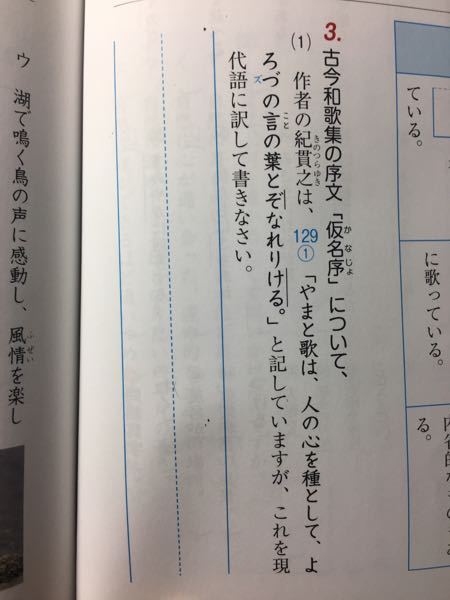 ている。
に歌っている。
る。
3. 古今和歌集の序文「仮名序」について、
かなじょ
(1) 作者の紀貫之は、129①「やまと歌は、人の心を種として、よ
きのつらゆき
ろづの言の葉とぞなれりける。」と記していますが、これを現
ズ
こと
代語に訳して書きなさい。
ウ 湖で鳴く鳥の声に感動し、風情を楽し
ふぜい